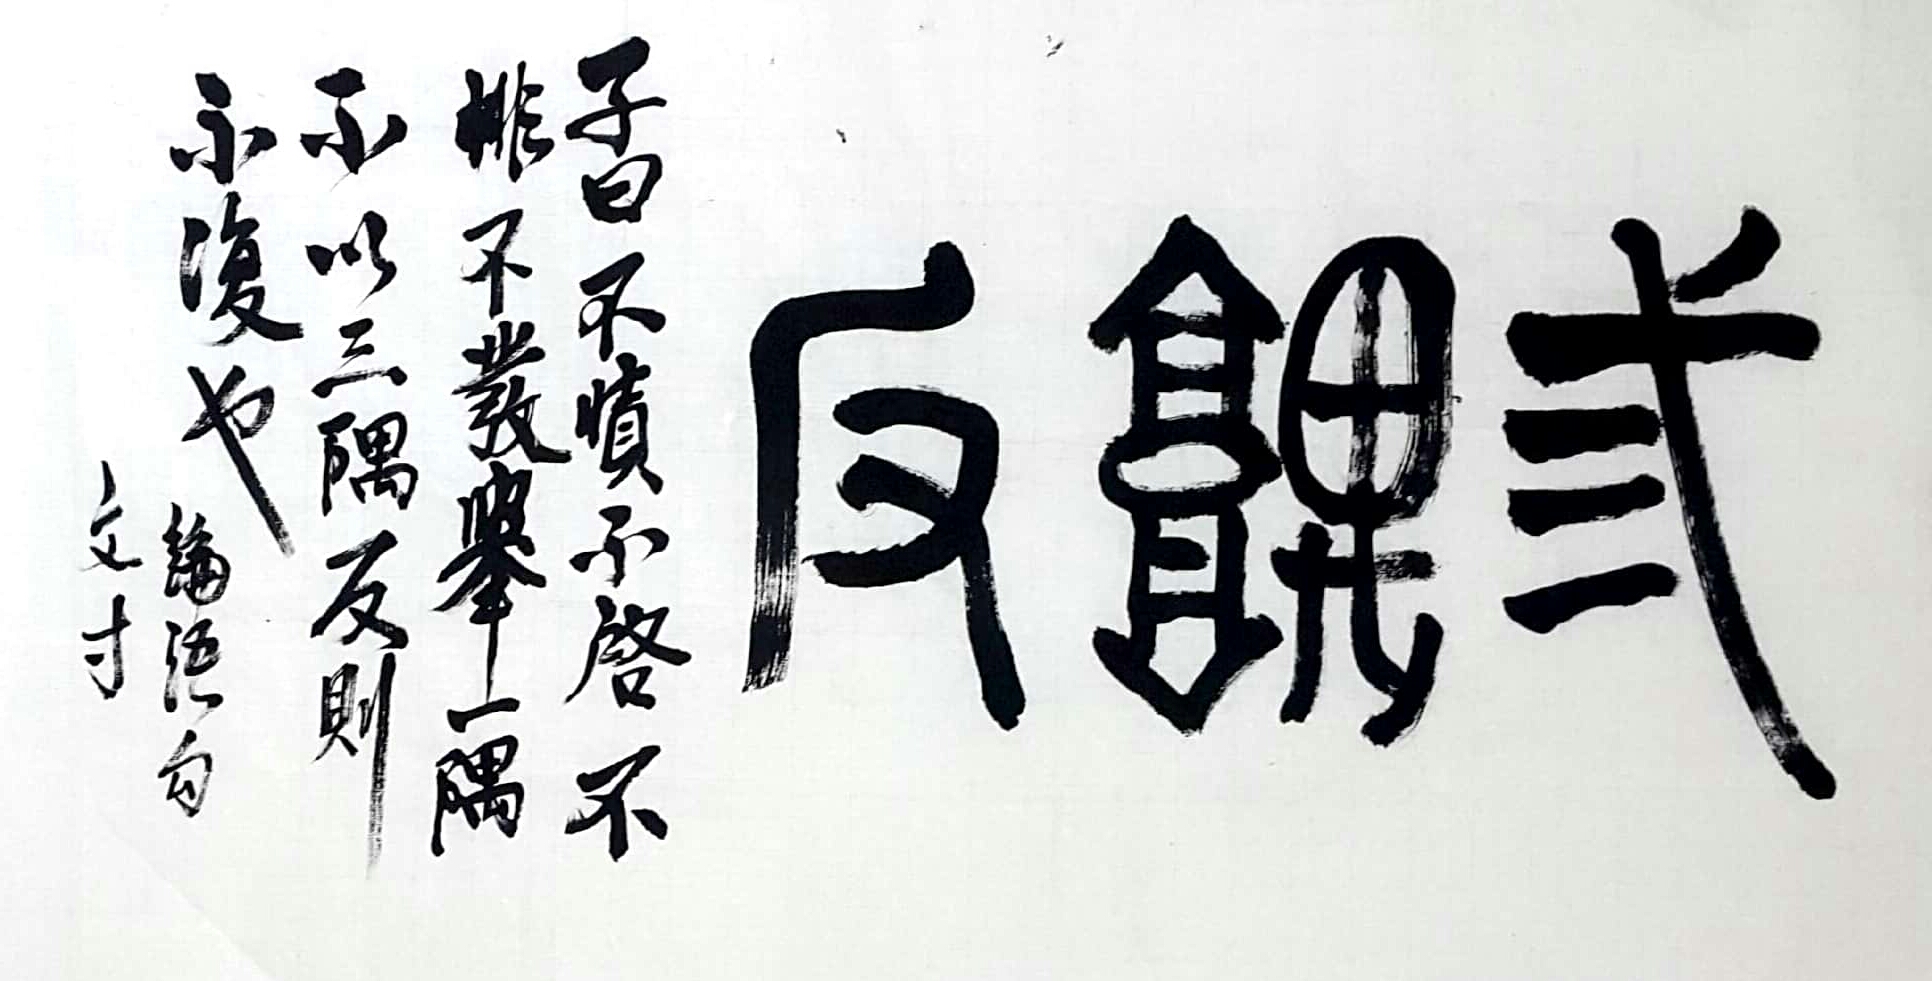 弎隅反
子曰不憤不啓不
悱不發舉一隅
不以三隅反則
不復也
論語句
文寸